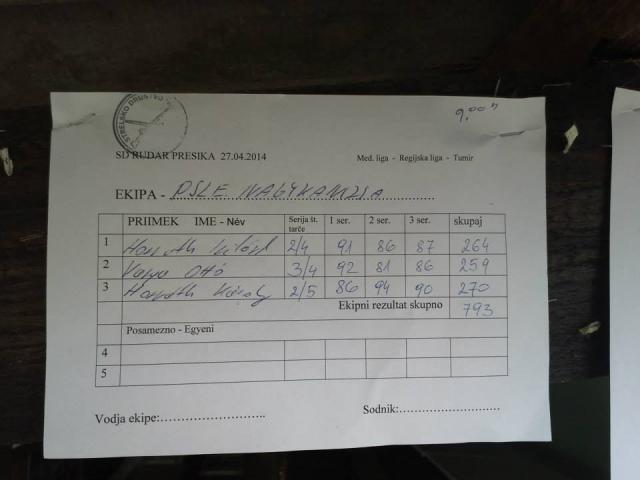 STRELSKO DRUŠTVO
9.00 h
SD RUDAR PRESIKA 27.04.2014
Med. liga - Regijska liga - Turnir
EKIPA - DSLE NAGYKANIZSA
PRIIMEK IME - Név Serija št. tarče 1 ser. 2 ser. 3 ser. skupaj
1 Horváth 2/4 91 86 87 264
2 Varga Ottó 3/4 92 81 86 259
3 Horváth Károly 2/5 86 94 90 270
Ekipni rezultat skupno 793
Posamezno - Egyeni
4
5
Vodja ekipe:
Sodnik: